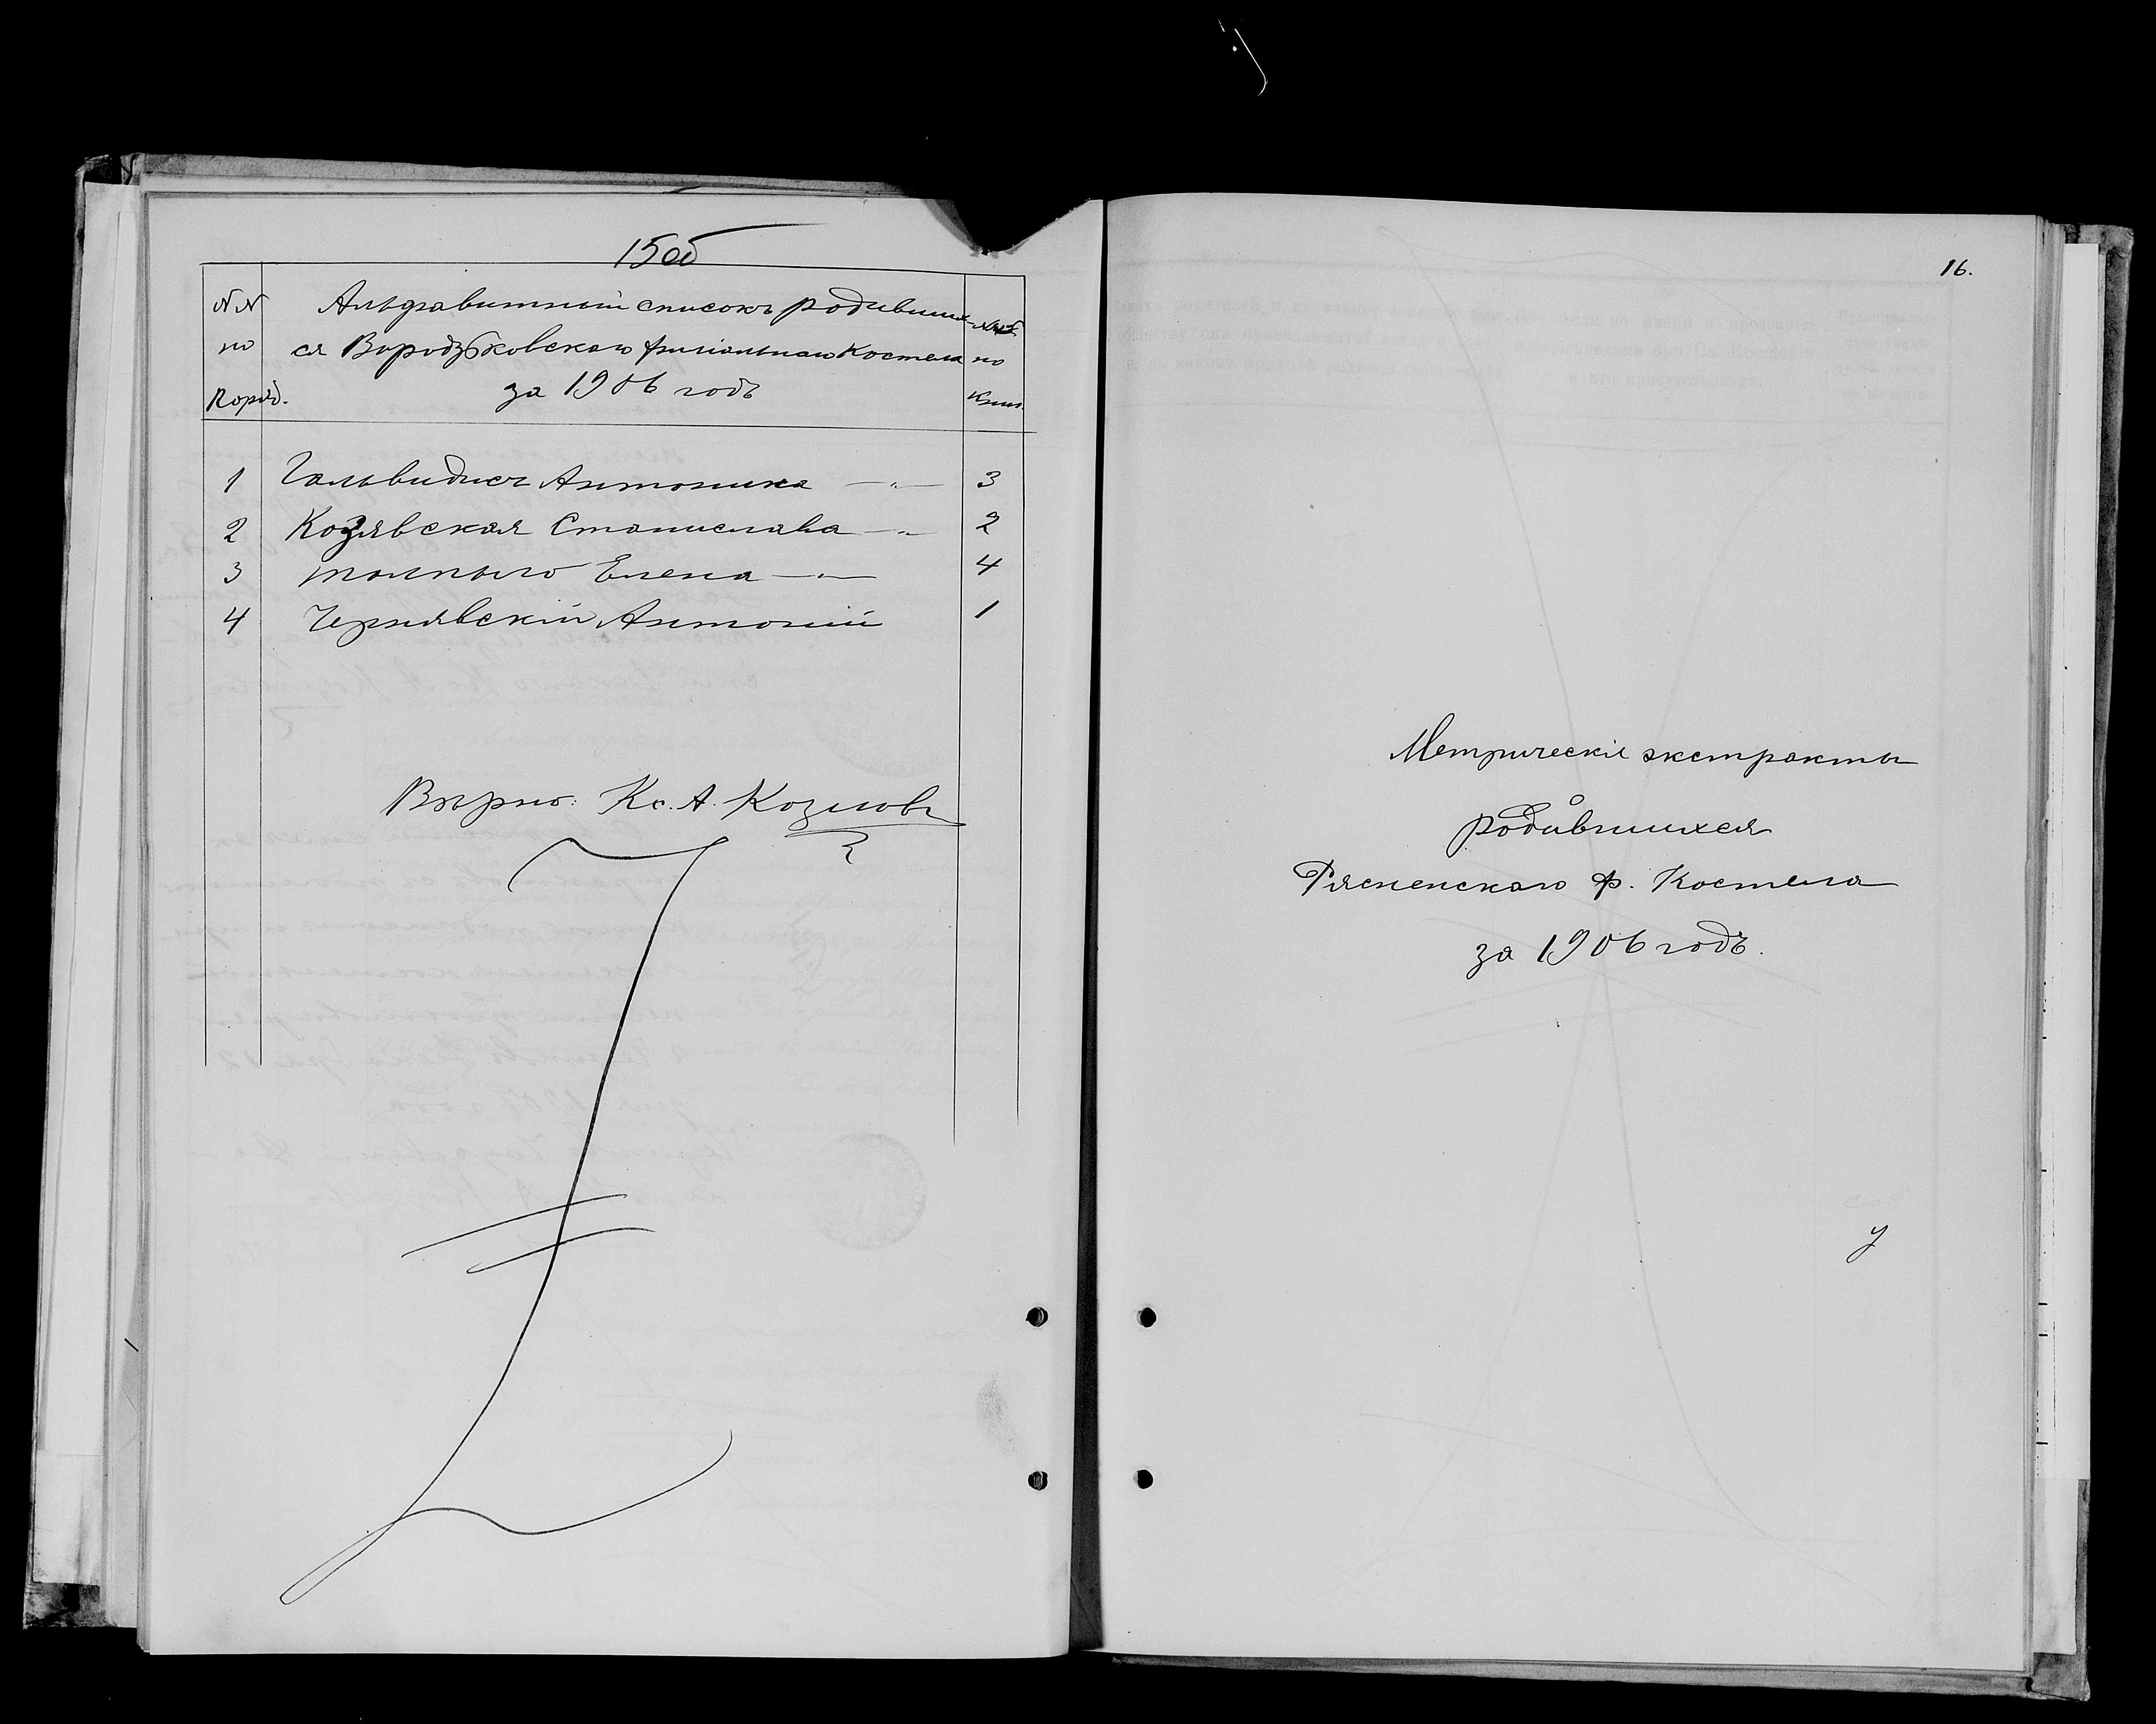 15об
NN по Поряд. Альфавитный списокъ родивших- NN по Книг.
ся Вородзьковскаго филіальнаго Костела
за 1906 годъ
1 Гальвидисъ Антонина — " — 3
2 Козявская Станислава — " — 2
3 Толпыго Елена — " — 4
4 Чернявскій Антоній 1
Вѣрно: Кс. А. Козловъ
16.
Метрическіе экстракты
родившихся
Рясненскаго ф. Костела
за 1906 годъ.